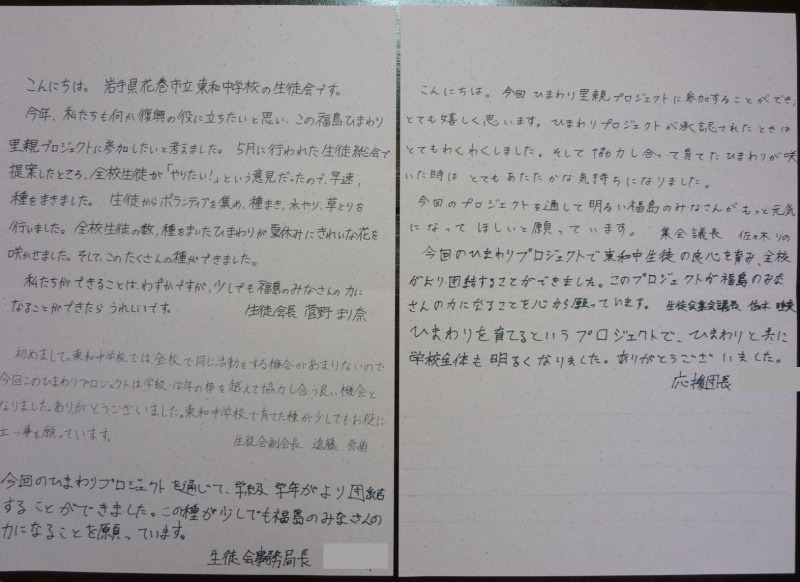 こんにちは。 岩手県花巻市立東和中学校の生徒会です。
今年、私たちも何か復興の役に立ちたいと思い、この福島ひまわり
里親プロジェクトに参加したいと考えました。 5月に行われた生徒総会で
提案したところ、全校生徒が「やりたい!」という意見だったので、早速、
種をまきました。 生徒からボランティアを集め、種まき、水やり、草とりを
行いました。全校生徒の数、種をまいたひまわりが夏休みにきれいな花を
咲かせました。そして、このたくさんの種ができました。
私たちができることは、わずかですが、少しでも福島のみなさんの力に
なることができたら うれしいです。 生徒会長 菅野 まり奈
初めまして。東和中学校では全校で同じ活動をする機会があまりないので
今回このひまわりプロジェクトは学級、学年の枠を越えて協力し合う良い機会と
なりました。ありがとうございました。東和中学校で育てた種が少しでもお役に
立つ事を願っています。 生徒会副会長 遠藤
今回のひまわりプロジェクトを通じて、学級、学年がより団結
することができました。この種が少しでも福島のみなさんの
力になることを願っています。
生徒会事務局長
こんにちは。 今回ひまわり里親プロジェクトに参加することができ、
とても嬉しく思います。ひまわりプロジェクトが承認されたときは
とてもわくわくしました。そして協力し合って育てたひまわりが咲
いた時は とてもあたたかな気持ちになりました。
今回のプロジェクトを通して明るい福島のみなさんがもっと元気
になって ほしいと願っています。 集会議長 佐々木 りの
今回のひまわりプロジェクトで東和中生徒の良心を育み、全校
がより団結することができました。このプロジェクトが福島のみな
さんの力になることを心から願っています。 生徒会集会議長 佐々木
ひまわりを育てるというプロジェクトで、ひまわりと共に
学校全体も明るくなりました。ありがとうございました。
応援団長